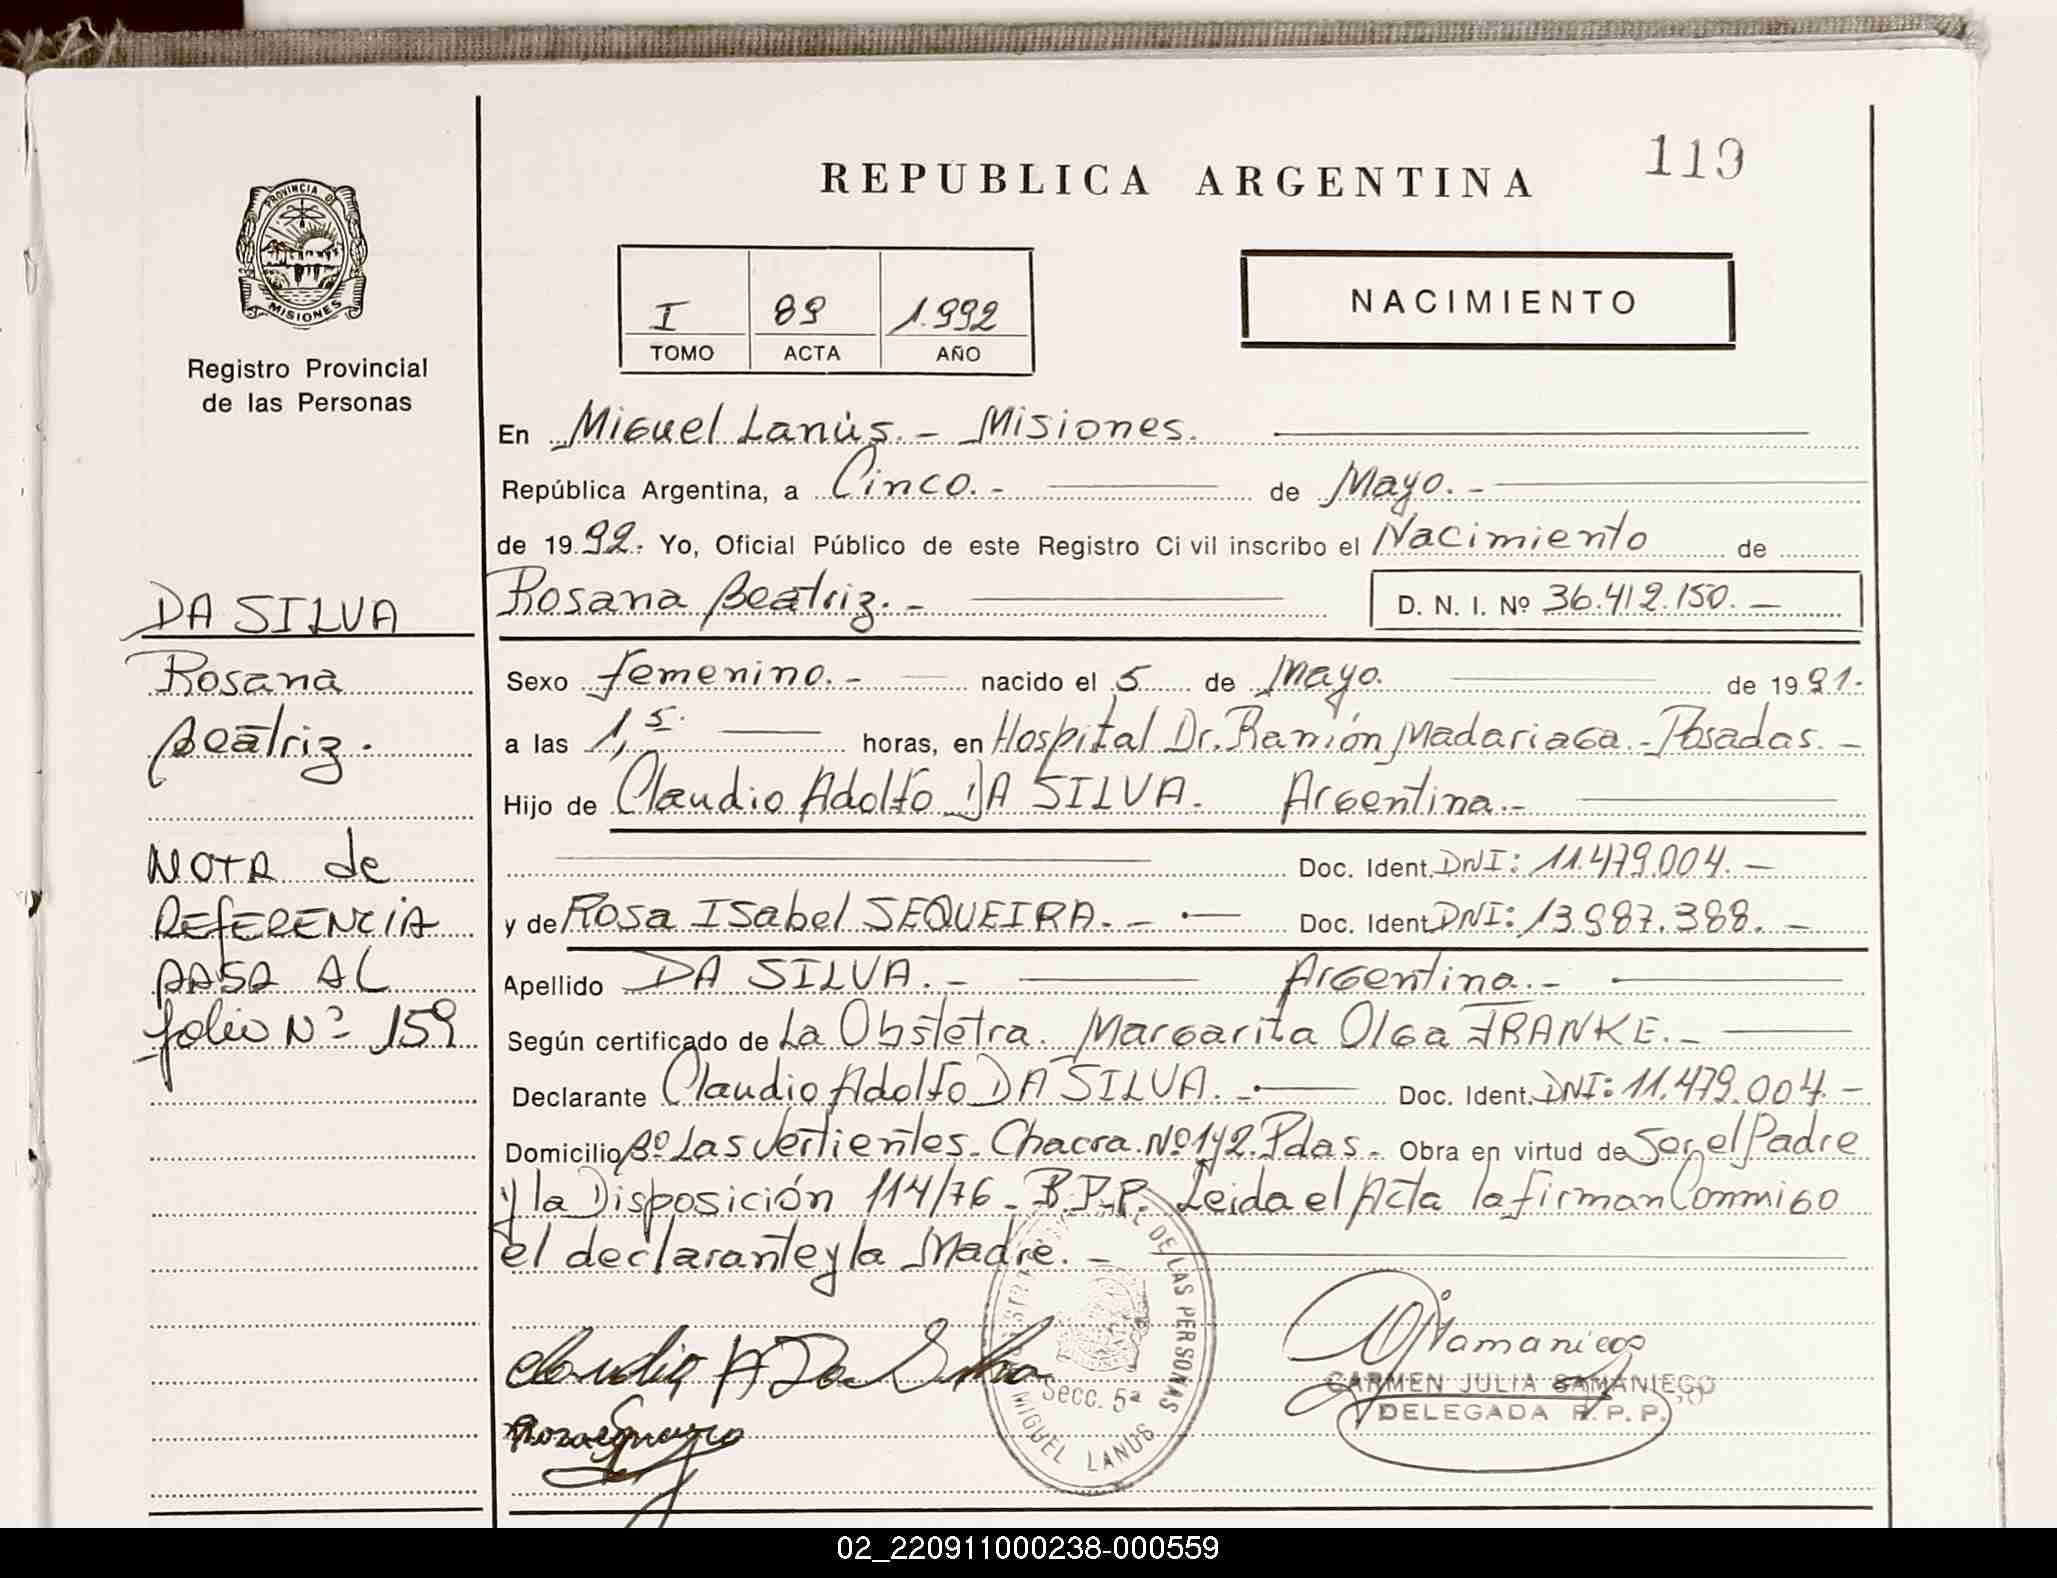 REPUBLICA ARGENTINA
119
PROVINCIA DE
MISIONES
Registro Provincial
de las Personas
I 89 1.992
TOMO ACTA AÑO
NACIMIENTO
En Miguel Lanús. - Misiones.
República Argentina, a Cinco. - de Mayo. -
de 1992. Yo, Oficial Público de este Registro Civil inscribo el Nacimiento de
Rosana Beatriz. - D. N. I. Nº 36.412.150. -
DA SILVA
Rosana
Beatriz.
NOTA de
REFERENCIA
PASA AL
folio Nº 159
Sexo femenino. - nacido el 5 de Mayo. de 1991.-
a las 1,5. horas, en Hospital Dr. Ramón Madariaga. - Posadas. -
Hijo de Claudio Adolfo DA SILVA. Argentina. -
Doc. Ident. DNI: 11.479.004. -
y de Rosa Isabel SEQUEIRA. - Doc. Ident. DNI: 13.987.388. -
Apellido DA SILVA. - Argentina. -
Según certificado de La Obstetra. Margarita Olga FRANKE. -
Declarante Claudio Adolfo DA SILVA. - Doc. Ident. DNI: 11.479.004. -
Domicilio Bº Las Vertientes. Chacra. Nº 1y2. Pdas. - Obra en virtud de Ser el Padre
y la Disposición 114/76 - R.P.P. Leida el Acta la firman Conmigo
el declarante y la Madre. -
Claudio A Da Silva
DE LAS PERSONAS
Secc. 5ª
MIGUEL LANUS
CARMEN JULIA SAMANIEGO
DELEGADA R.P.P.
02_220911000238-000559